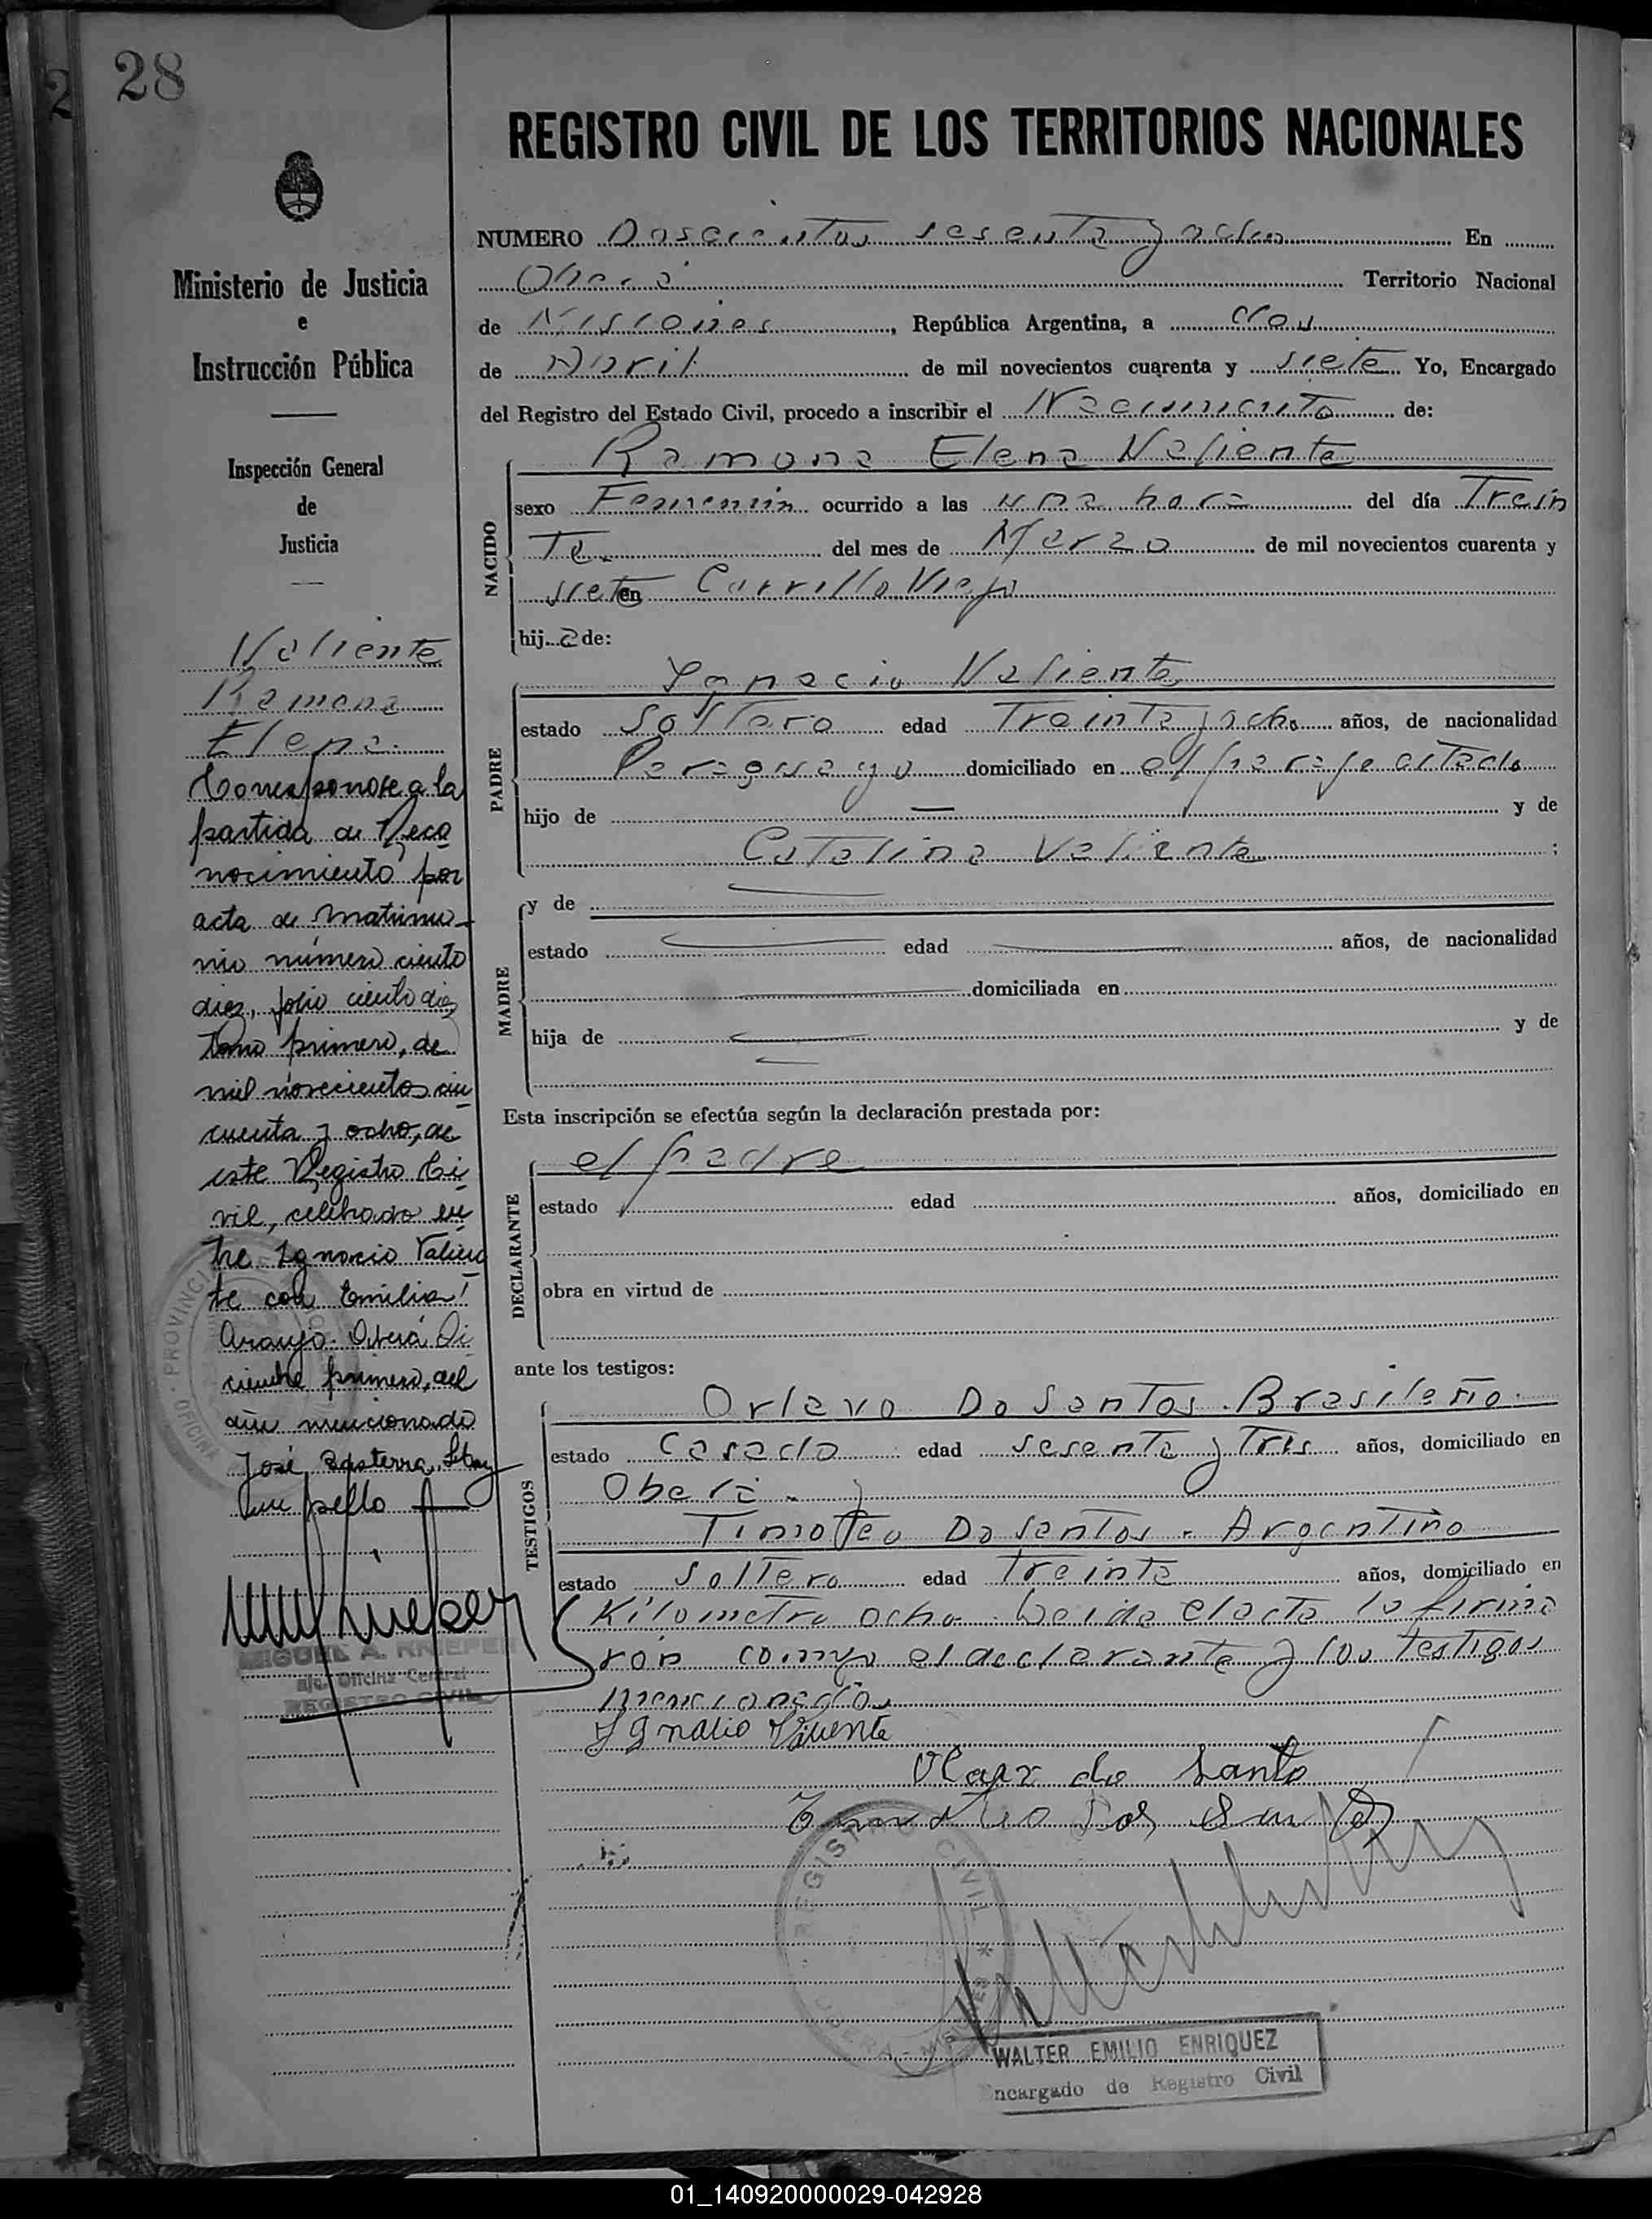 28
REGISTRO CIVIL DE LOS TERRITORIOS NACIONALES
Ministerio de Justicia
e
Instrucción Pública
Inspección General
de
Justicia
NUMERO Doscientos sesenta y ocho En
Oberá Territorio Nacional
de Misiones, República Argentina, a dos
de Abril de mil novecientos cuarenta y siete Yo, Encargado
del Registro del Estado Civil, procedo a inscribir el Nacimiento de:
NACIDO
Ramona Elena Valiente
sexo Femenin ocurrido a las una hora del día Trein
Ta. del mes de Marzo de mil novecientos cuarenta y
siete en Cerrillo Viejo
hij a de:
PADRE
Ignacio Valiente
estado Soltero edad Treinta y ocho años, de nacionalidad
Paraguayo domiciliado en el paraje citado
hijo de — y de
Catalina Valiente ;
MADRE
y de
estado edad años, de nacionalidad
domiciliada en
hija de y de
Esta inscripción se efectúa según la declaración prestada por:
DECLARANTE
el padre
estado edad años, domiciliado en
obra en virtud de
ante los testigos:
TESTIGOS
Orlavo Do Santos. Brasileño.
estado Casado edad Sesenta y Tres años, domiciliado en
Oberá.
Timoteo Do Santos. Argentino
estado Soltero edad Treinta años, domiciliado en
Kilometro ocho. Leida el acta la firma
ron conmigo el declarante y los testigos
mencionados
Ignacio
de Santo
WALTER EMILIO ENRIQUEZ
Encargado de Registro Civil
REGISTRO CIVIL
Valiente
Ramona
Elena.
Corresponde a la
partida de Reco
nocimiento por
acta de Matrimo-
nio número ciento
diez, folio ciento diez
Tomo primero, de
mil novecientos cin
cuenta y ocho, de
este Registro Ci
vil, celebrado en
tre Ignacio Valien
te con Emilia
Araujo. Oberá Di
ciembre primero, del
año mencionado
José Basterra,
PROVINCI
OFICINA
MIGUEL A. KRIEPER
Oficina Central
REGISTRO CIVIL
01_140920000029-042928